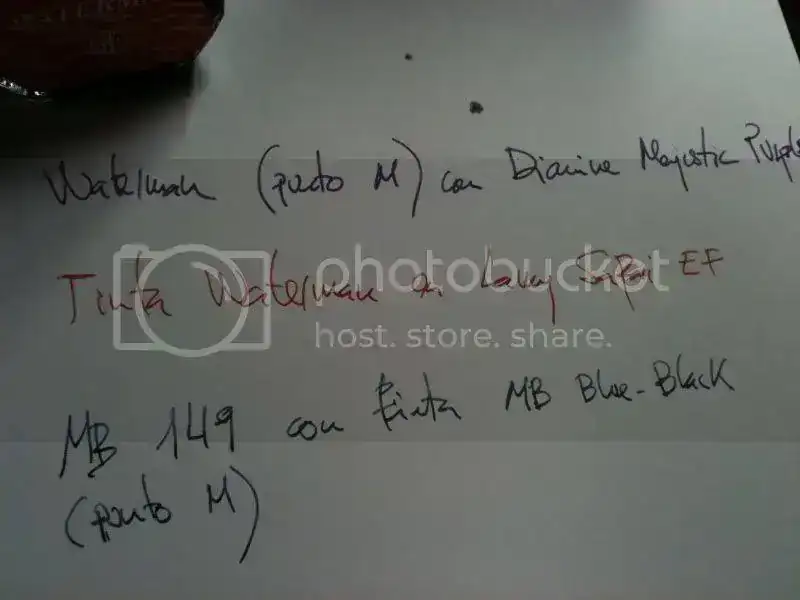 Waterman (punto M) con Diamine Majestic Purple
Tinta Waterman en Lamy Safari EF
photobucket
host. store. share.
MB 149 con tinta MB Blue-Black
(punto M)